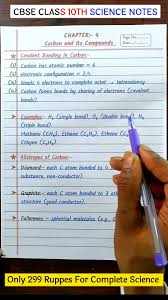 CBSE CLASS 10TH SCIENCE NOTES
CHAPTER:- 4
Carbon and its Compounds
Covalent Bonding in Carbon:-
(i) Carbon has atomic number = 6
(ii) electronic configuration = 2,4
(iii) Needs 4 electrons to complete octet → tetravalency
(iv) Carbon forms bonds by sharing of electrons (covalent
bonds)
Examples:- H₂ (single bond), O₂ (double bond), N₂
(triple bond)
Methane (CH₄), Ethane (C₂H₆), Ethene (C₂H₄),
Ethyne (C₂H₂)
Allotropes of Carbon:-
Diamond:- each C atom bonded to 4
substance, non-conductor).
Graphite:- each C atom bonded to 3
structure (good conductor).
Fullerenes:- spherical molecules (e.g., C
Only 299 Ruppes For Complete Science